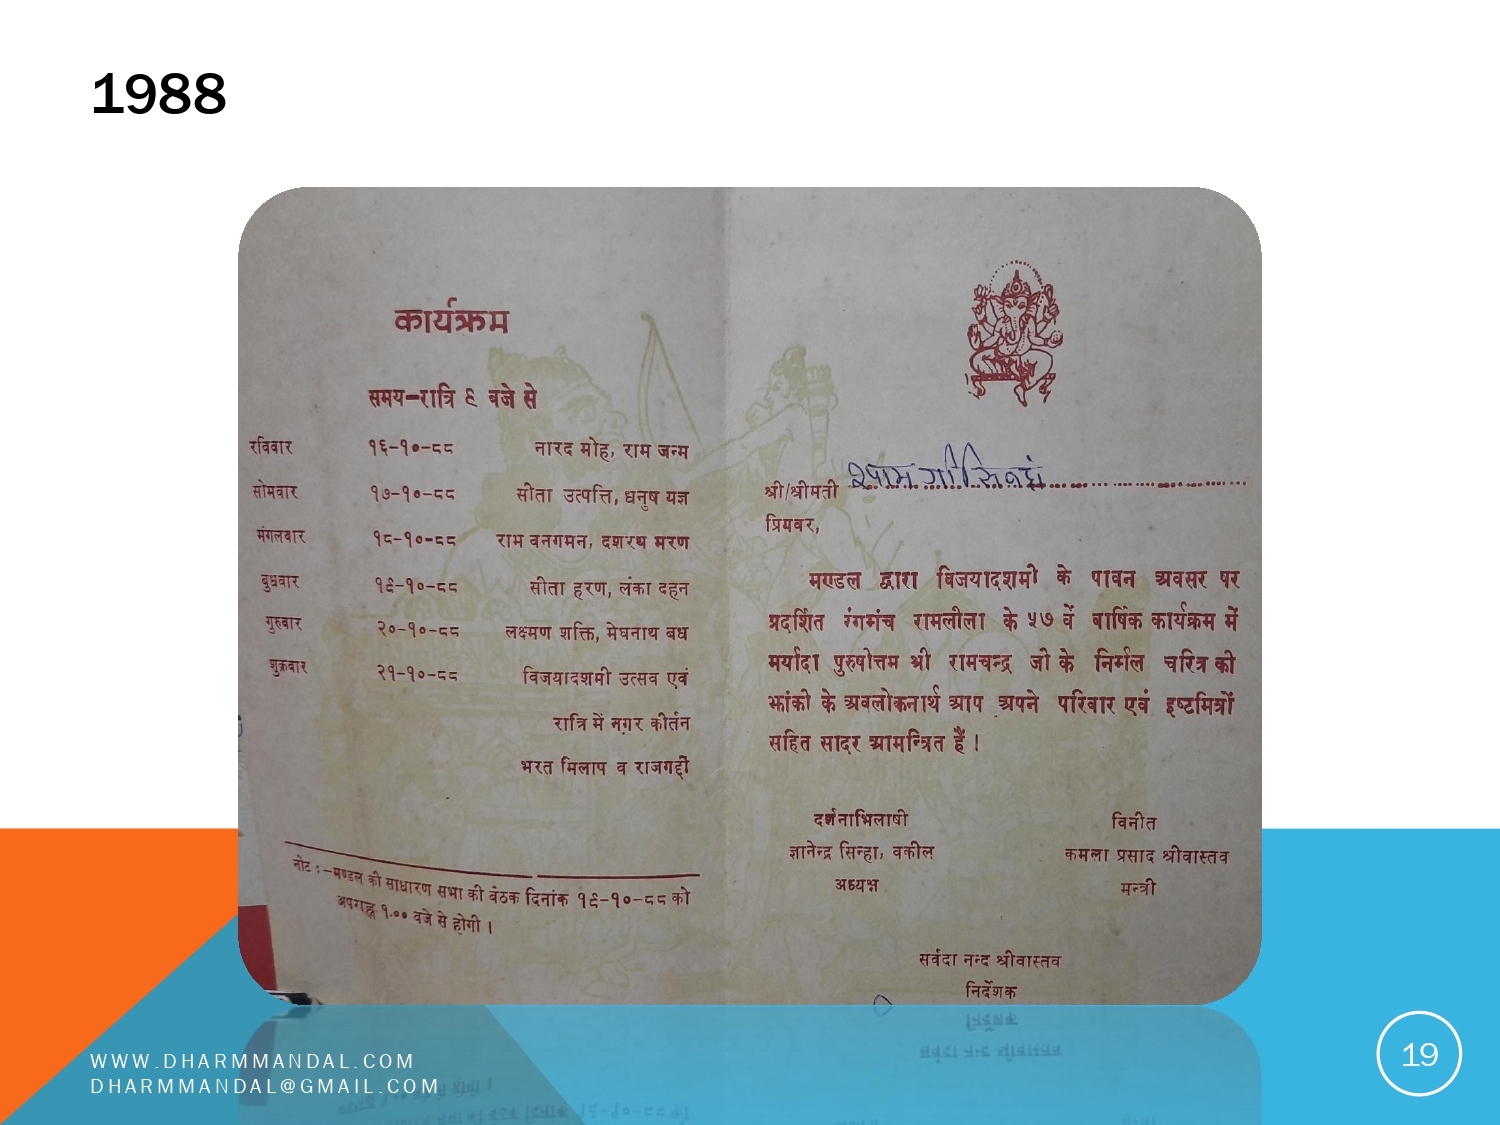 1988
कार्यक्रम
समय-रात्रि ९ बजे से
रविवार १६-१०-८८ नारद मोह, राम जन्म
सोमवार १७-१०-८८ सीता उत्पत्ति, धनुष यज्ञ
मंगलवार १८-१०-८८ राम वनगमन, दशरथ मरण
बुधवार १९-१०-८८ सीता हरण, लंका दहन
गुरुवार २०-१०-८८ लक्ष्मण शक्ति, मेघनाथ बध
शुक्रवार २१-१०-८८ विजयादशमी उत्सव एवं
रात्रि में नगर कीर्तन
भरत मिलाप व राजगद्दी
नोट :-मण्डल की साधारण सभा की बैठक दिनांक १९-१०-८८ को
अपराह्न १.०० बजे से होगी ।
श्री/श्रीमती श्याम जी
प्रियवर,
मण्डल द्वारा विजयादशमी के पावन अवसर पर
प्रदर्शित रंगमंच रामलीला के ५७ वें वार्षिक कार्यक्रम में
मर्यादा पुरुषोत्तम श्री रामचन्द्र जी के निर्मल चरित्र की
झांकी के अवलोकनार्थ आप अपने परिवार एवं इष्टमित्रों
सहित सादर आमन्त्रित हैं !
दर्शनाभिलाषी
ज्ञानेन्द्र सिन्हा, वकील
अध्यक्ष
विनीत
कमला प्रसाद श्रीवास्तव
मन्त्री
सर्वदा नन्द श्रीवास्तव
निर्देशक
WWW.DHARMMANDAL.COM
DHARMMANDAL@GMAIL.COM
19